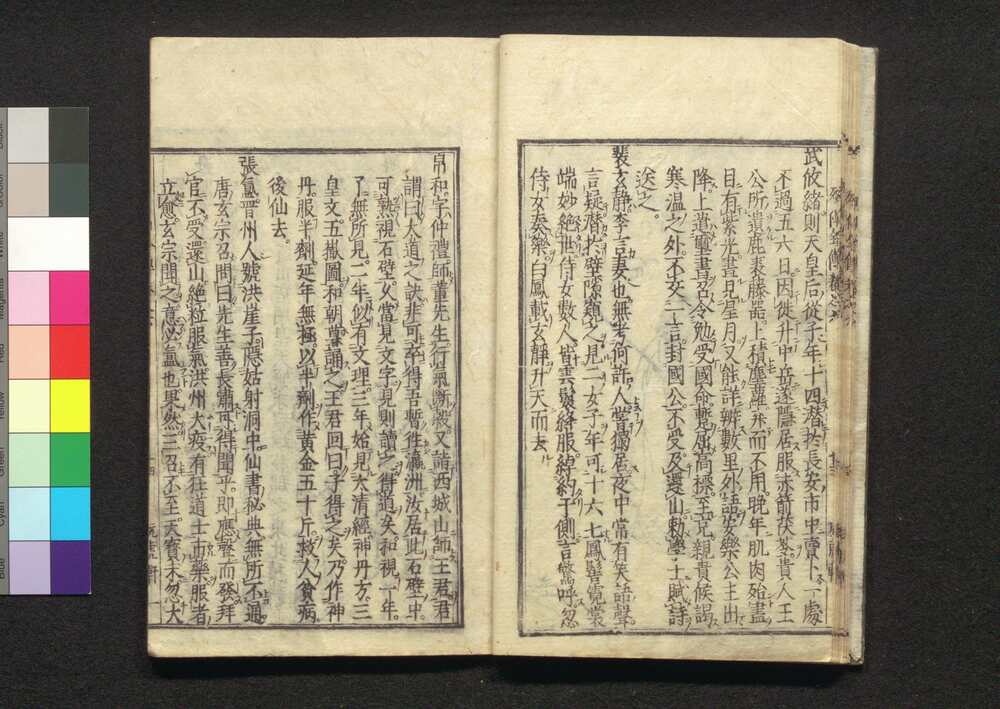 武攸緒則天皇后從子年十四潛於長安市中賣卜一處
不過五六日因徙升中岳遂隱居服赤箭茯苓貴人王
公所遺鹿裘藤器上積塵蘿弁而不用晚年肌肉殆盡
目有紫光晝見星月又能詳辨數里外語安樂公主出
降上遣璽書召令勉受國命暫屈高標至京親貴候謁
寒温之外不交一言封國公不受及還山敕學士賦詩
送之
裴玄靜李言妻也無考何許人嘗獨居夜中常有笑語聲
言疑潛於壁隙窺之見二女子年可十六七鳳髻霓裳
端妙絶世侍女數人皆雲髮絳服綽約于側言驚呼忽
侍女奏樂白鳳載玄靜升天而去
帛和字仲禮師董先生行氣斷穀又詣西城山師王君君
謂曰大道之訣非可卒得吾暫往瀛洲汝居此石壁中
可熟視石壁久當見文字見則讀之得道矣和視一年
了無所見二年似有文理三年始見太清經神丹方三
皇文五嶽圖和朝暮誦之王君回曰子得之矣乃作神
丹服半劑延年無極以半劑作黄金五十斤救人貧病
後仙去
張氳晋州人號洪崖子隱姑射洞中仙書秘典無所不通
唐玄宗召問曰先生善長嘯可得聞乎即應聲而發拜
官不受還山絶粒服氣洪州大疫有狂道士市藥服者
立愈玄宗聞之意必氳也果然三召不至天寳末忽大